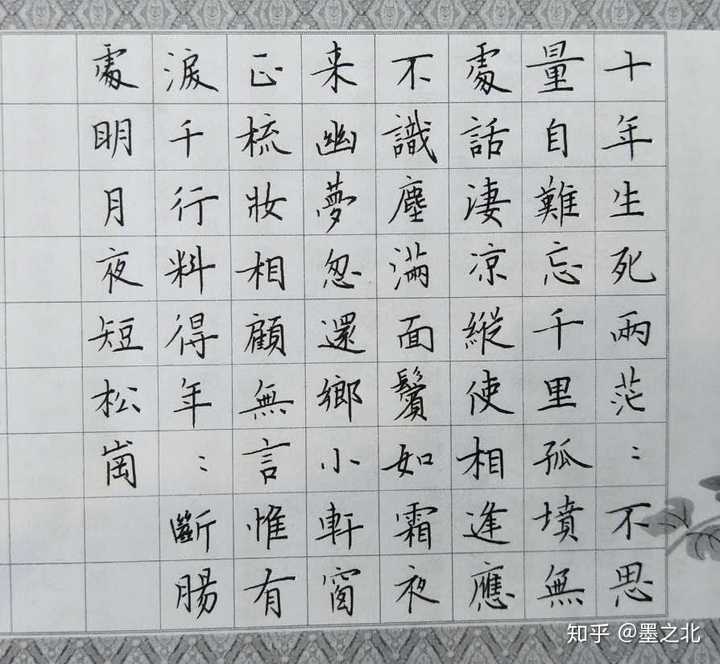 十年生死兩茫：不思
量自難忘千里孤墳無
處話淒涼縱使相逢應
不識塵滿面鬢如霜夜
来幽夢忽還鄉小軒窗
正梳妝相顧無言惟有
淚千行料得年：斷腸
處明月夜短松崗
知乎 @墨之北